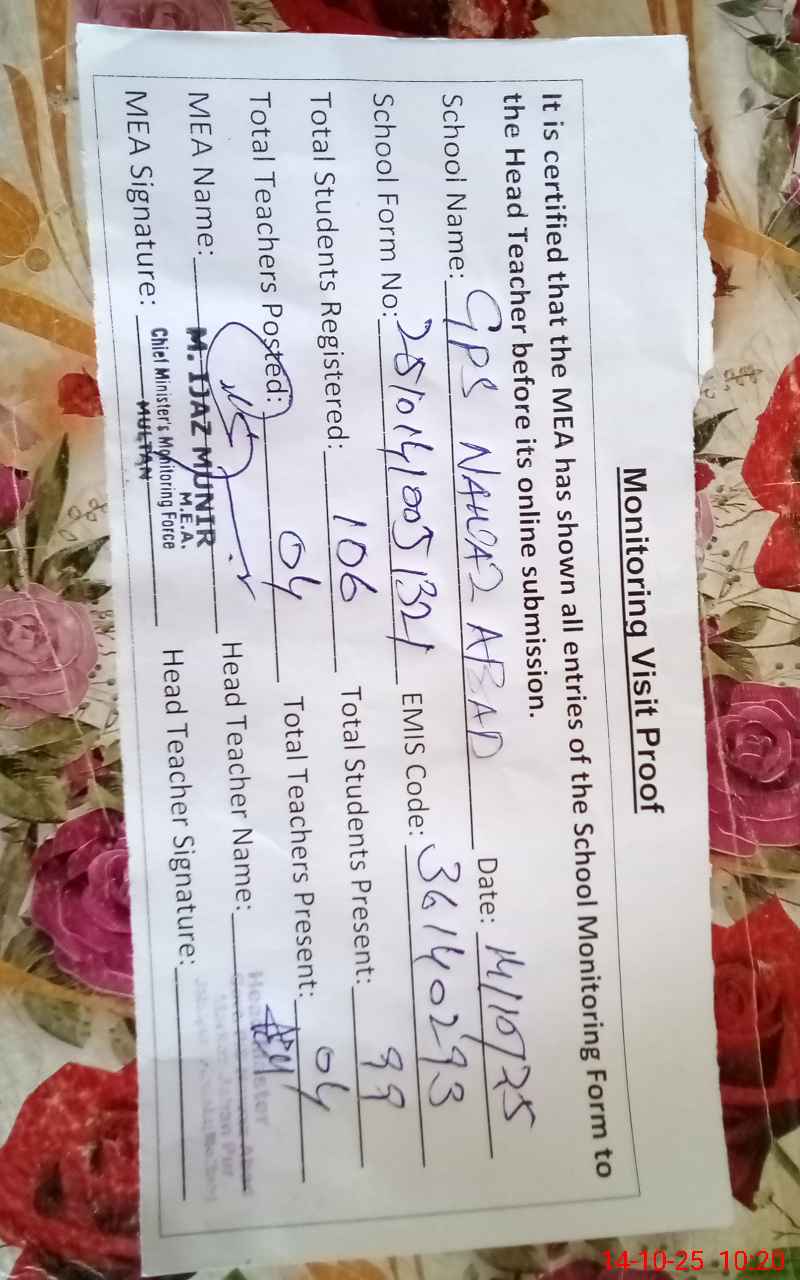 Monitoring Visit Proof
It is certified that the MEA has shown all entries of the School Monitoring Form to
the Head Teacher before its online submission.
School Name: GPS NAWAZ ABAD Date: 14/10/25
School Form No: 25101410051321 EMIS Code: 36140293
Total Students Registered: 106 Total Students Present: 99
Total Teachers Posted: 04 Total Teachers Present: 04
MEA Name: M. IJAZ MUNIR Head Teacher Name:
M.E.A.
MEA Signature: Chief Minister's Monitoring Force Head Teacher Signature:
MULTAN
14-10-25 10:20